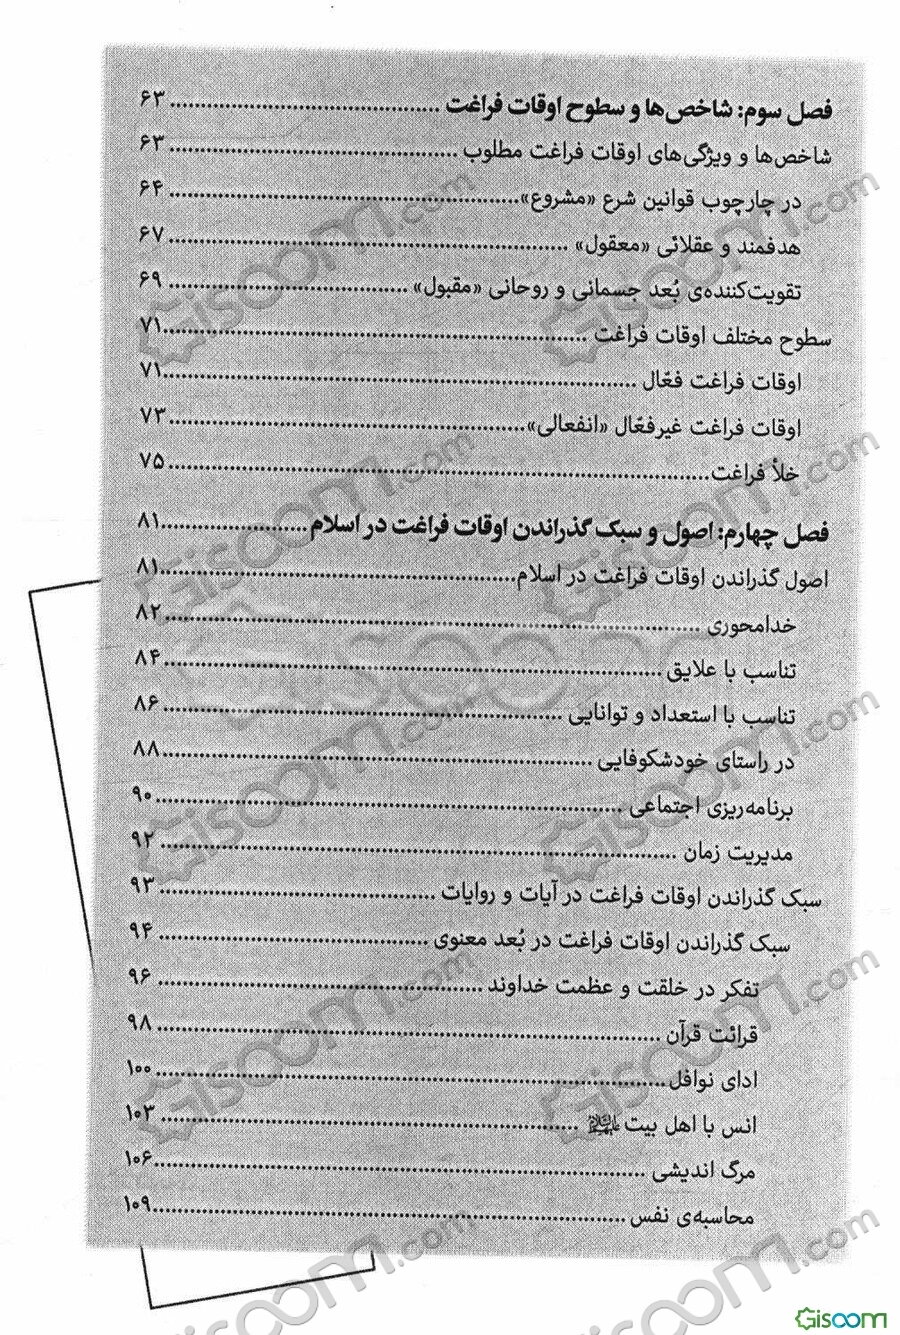 فصل سوم: شاخص‌ها و سطوح اوقات فراغت ........ ۶۳
شاخص‌ها و ویژگی‌های اوقات فراغت مطلوب ........ ۶۳
در چارچوب قوانین شرع «مشروع» ........ ۶۴
هدفمند و عقلائی «معقول» ........ ۶۷
تقویت‌کننده‌ی بُعد جسمانی و روحانی «مقبول» ........ ۶۹
سطوح مختلف اوقات فراغت ........ ۷۱
اوقات فراغت فعّال ........ ۷۱
اوقات فراغت غیرفعّال «انفعالی» ........ ۷۳
خلأ فراغت ........ ۷۵
فصل چهارم: اصول و سبک گذراندن اوقات فراغت در اسلام ........ ۸۱
اصول گذراندن اوقات فراغت در اسلام ........ ۸۱
خدامحوری ........ ۸۲
تناسب با علایق ........ ۸۴
تناسب با استعداد و توانایی ........ ۸۶
در راستای خودشکوفایی ........ ۸۸
برنامه‌ریزی اجتماعی ........ ۹۰
مدیریت زمان ........ ۹۲
سبک گذراندن اوقات فراغت در آیات و روایات ........ ۹۳
سبک گذراندن اوقات فراغت در بُعد معنوی ........ ۹۴
تفکر در خلقت و عظمت خداوند ........ ۹۶
قرائت قرآن ........ ۹۸
ادای نوافل ........ ۱۰۰
انس با اهل بیت علیهم‌السلام ........ ۱۰۳
مرگ اندیشی ........ ۱۰۶
محاسبه‌ی نفس ........ ۱۰۹
Gisoom.com
Gisoom